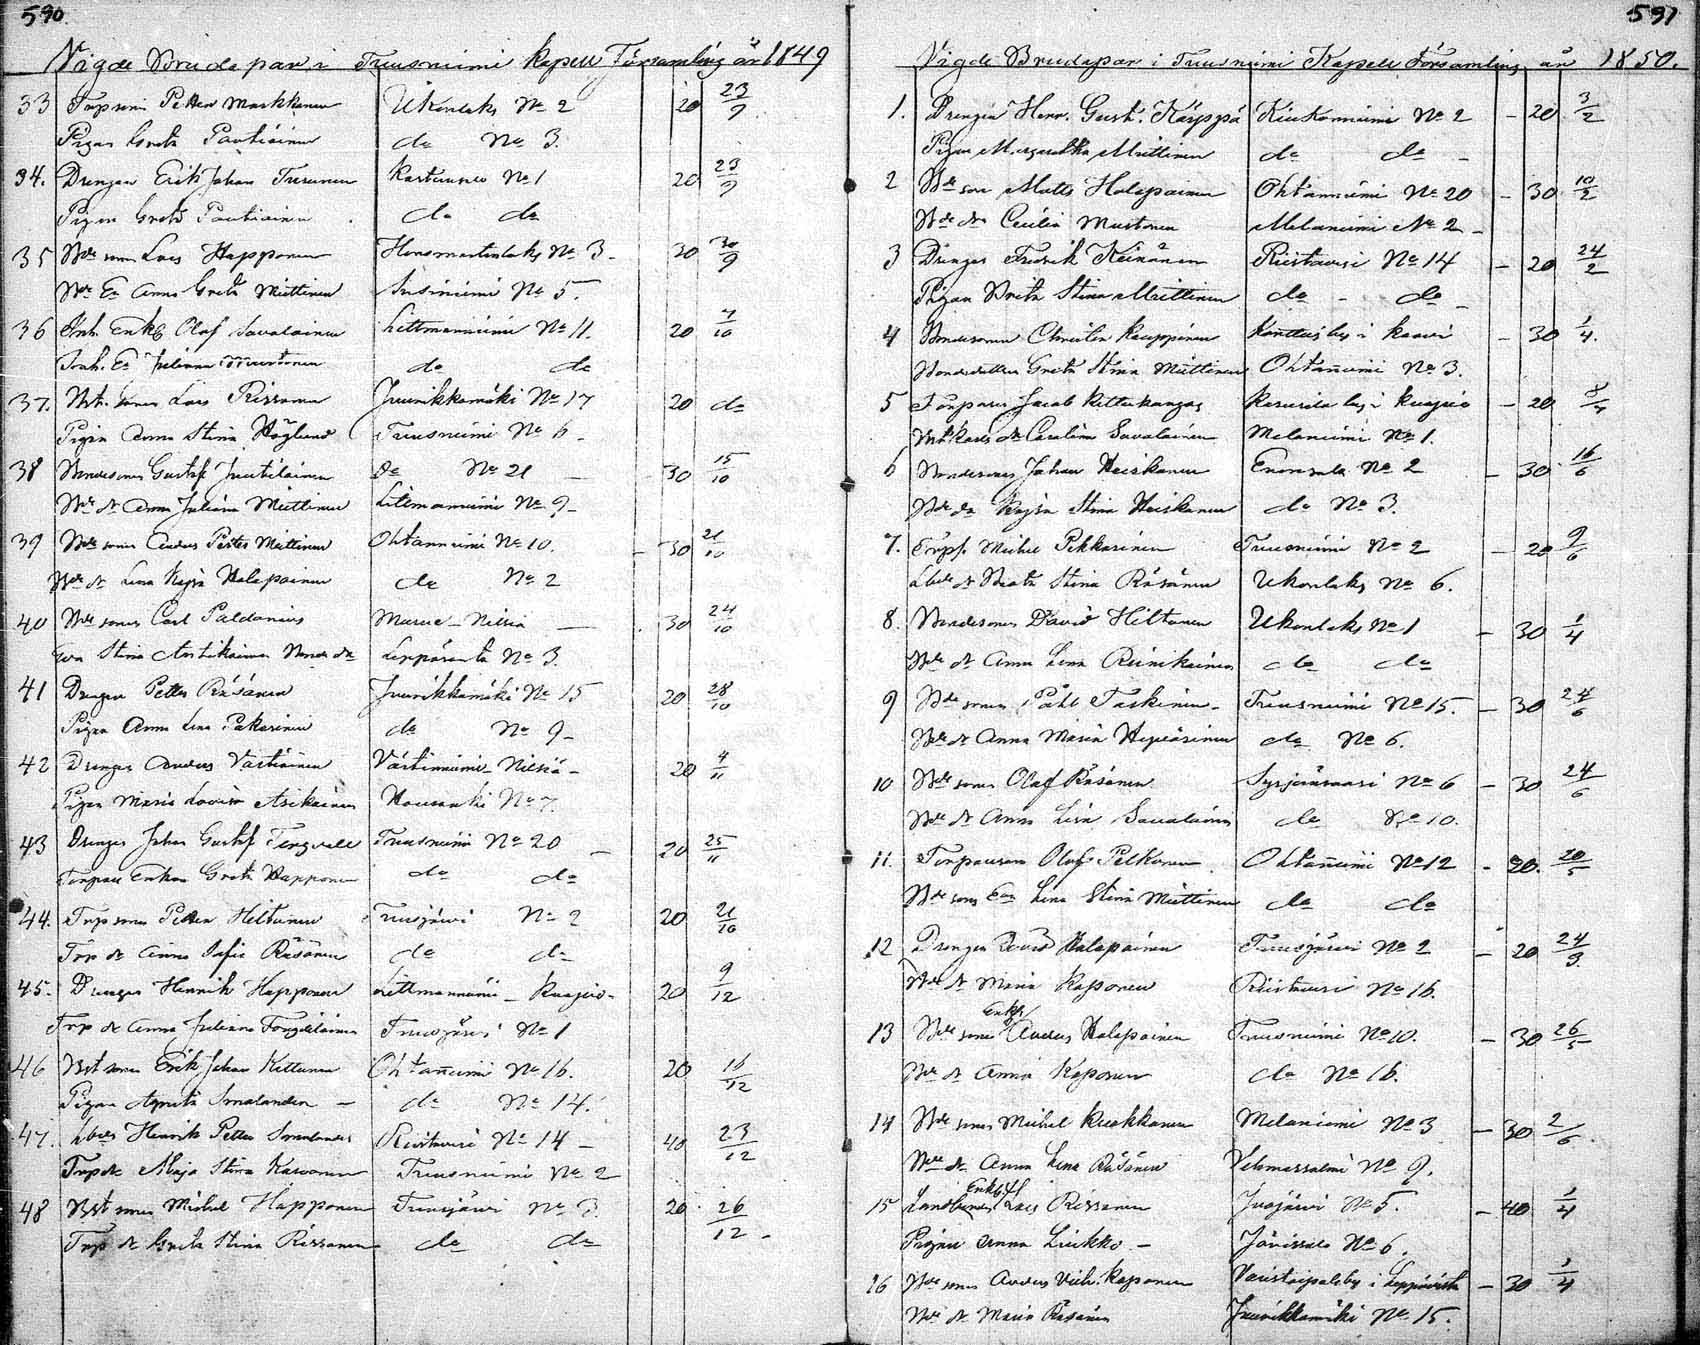 590
Vigde Brudepar i Tuusniemi Kapell Församling år 1849
33 Torpson Petter Markkanen Ukonlaks No 2 20 23/9
Pigan Greta Pautiainen do No 3.
34. Drengen Erik Johan Turunen No 1 20 23/9
Pigan Greta Pautiainen do do
35 Bde son Lars Happonen No 3 20 30/9
Bde Ea Anna Greta Miettinen Susiniemi No 5.
36 Inh. Enkl Olof Savolainen Litmaniemi No 11. 20 7/10
Inh. Ea Juliana do do
37. sonen Lars Rissanen Juurikkamäki No 17 20 do
Pigan Anna Stina Höglund Tuusniemi No 6
38 Bondesonen Gustaf Juutilainen Do No 21 30 15/10
Bde dr Anna Juliana Miettinen Litmaniemi No 9
39 Bde sonen Anders Petter Miettinen Ohtaniemi No 10. 30 21/10
Bde dr Lena Kajsa Halapainen do No 2
40 Bde sonen Carl Paldanius Nilsiä 30 24/10
Eva Stina Antikainen Bonde dr Lepäranta No 3.
41 Drengen Petter Räsänen Juurikkamäki No 15 20 28/10
Pigan Anna Lena Pekarinen do No 9
42 Drengen Anders Vartiainen Västinniemi Nilsiä 20 4/11
Pigan Maria Lovisa Asikainen No 7.
43 Drengen Johan Gustaf Tengvall Tuusniemi No 20 20 25/11
Torpare Enkan Greta Happonen do do
44. Torp sonen Petter Hiltunen Tuusjärvi No 2 20 21/10
Torp dr Anna Sofia Räsänen do do
45. Drengen Henrik Happonen Litmaniemi Kuopio 20 9/12
Torp dr Anna Juliana Tuusjärvi No 1
46 sonen Erik Johan Kettunen Ohtaniemi No 16. 20 16/12
Pigan Agneta Smalander do No 14.
47. Henrik Petter Smalander Riistavesi No 14 40 23/12
Torp dr Maja Stina Karvonen Tuusniemi No 2
48 sonen Michel Happonen Tuusjärvi No 3 20 26/12
Torp dr Greta Stina Rissanen do do
591
Vigde Brudepar i Tuusniemi Kapell Församling år 1850.
1. Drengen Henr. Gust. Käyppä Kiukoniemi No 2 20 3/2
Pigan Margaretha Miettinen do do
2 Bde son Matts Halapainen Ohtaniemi No 20 30 10/2
Bde dr Cecilia Mustonen Melaniemi No 2
3 Drengen Fredrik Keinänen Riistavesi No 14 20 24/2
Pigan Brita Stina Miettinen do do
4 Bondesonen Christer Kauppinen by i Kaavi 30 1/4.
Bondedottren Greta Stina Miettinen Ohtaniemi No 3.
5 Jacob Kettukangas by i Kuopio 20 8/4
dr Carolina Savolainen Melaniemi No 1.
6 Bondesonen Johan Heiskanen Enonsalo No 2 30 16/6
Bde dr Kajsa Stina Heiskanen do No 3.
7. Torps. Michel Pekkarinen Tuusniemi No 2 20 9/6
dr Beata Stina Räsänen Ukonlaks No 6.
8. Bondesonen David Hiltunen Ukonlaks No 1 30 1/4
Bde dr Anna Lena Reinikainen do do
9 Bde sonen Påhl Taskinen Tuusniemi No 15. 30 24/6
Bde dr Anna Maria do No 6.
10 Bde sonen Olof Räsänen Syrjänsaari No 6 30 24/6
Bde dr Anna Lisa Savolainen do No 10.
11. Torparen Olof Pelkonen Ohtaniemi No 12 20. 20/5
Bde sons Ea Lena Stina Miettinen do do
12 Drengen David Halapainen Tuusjärvi No 2 20 24/3.
Bde dr Maria Kaponen Riistavesi No 16.
13 Bde sonen Enkl Anders Halapainen Tuusniemi No 10. 30 26/5
Bde dr Anna Kaponen do No 16.
14 Bde sonen Michel Ruokkanen Melaniemi No 3 30 2/6.
Bde dr Anna Lena Räsänen Vehmersalmi No 9.
15 Landbonden Enkl. Lars Rissanen Juojärvi No 5. 40 1/4
Pigan Anna Liukko No 6.
16 Bde sonen Anders Vilh. Kaponen by i Leppävirta 30 1/4
Bde dr Maria Räsänen Juurikkamäki No 15.